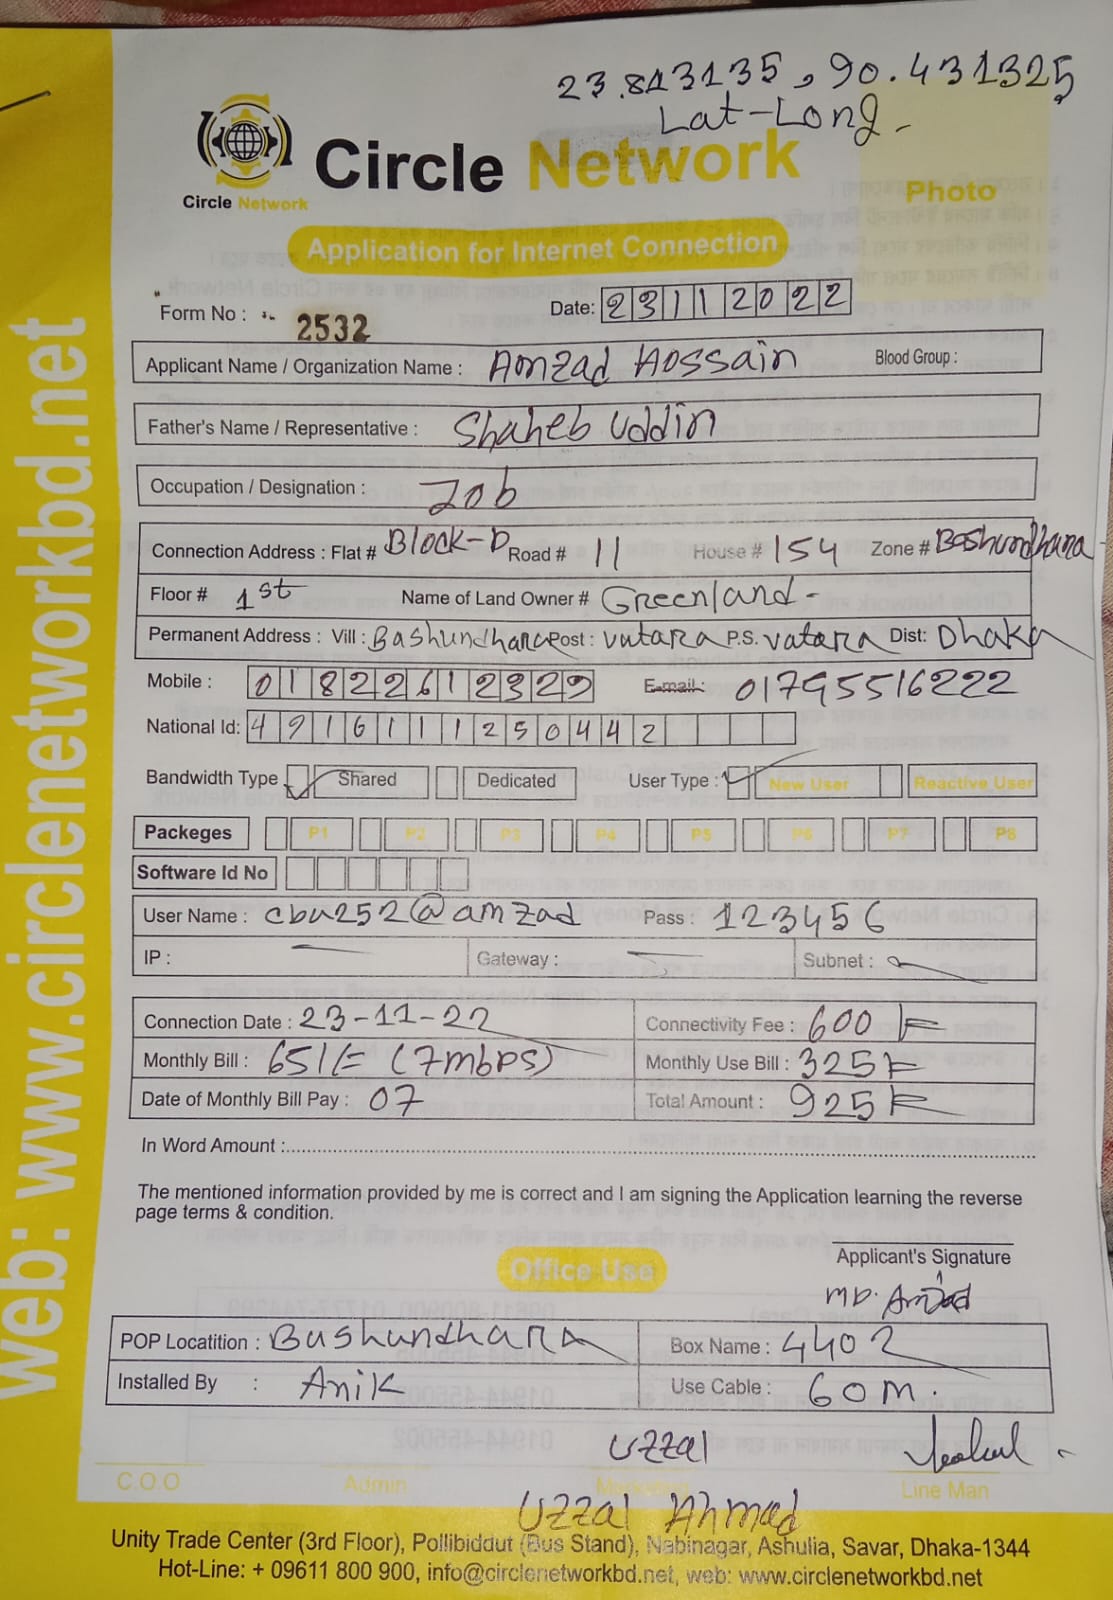 23.813135, 90.431325
Lat-Long-
Circle Network
Circle Network
Photo
Application for Internet Connection
Form No : 2532 Date: 23112022
Applicant Name / Organization Name : Amzad Hossain Blood Group :
Father's Name / Representative : Shaheb Uddin
Occupation / Designation : Job
Connection Address : Flat # Block-D Road # 11 House # 154 Zone # Bashundhara
Floor # 1st Name of Land Owner # Greenland-
Permanent Address : Vill : Bashundhara Post : vatara P.S. vatara Dist: Dhaka
Mobile : 01822612329 E-mail : 01795516222
National Id: 4916111250442
Bandwidth Type Shared Dedicated User Type : New User Reactive User
Packeges P1 P2 P3 P4 P5 P6 P7 P8
Software Id No
User Name : cbu252@amzad Pass : 123456
IP : Gateway : Subnet :
Connection Date : 23-11-22 Connectivity Fee : 600/=
Monthly Bill : 651/= (7mbps) Monthly Use Bill : 325/=
Date of Monthly Bill Pay : 07 Total Amount : 925/=
In Word Amount :
The mentioned information provided by me is correct and I am signing the Application learning the reverse
page terms & condition.
Applicant's Signature
MD. Amzad
Office Use
POP Locatition : Bashundhara Box Name : 4402
Installed By : Anik Use Cable : 60m.
Uzzal
C.O.O Admin Marketing Line Man
Uzzal Ahmad
Unity Trade Center (3rd Floor), Pollibiddut (Bus Stand), Nabinagar, Ashulia, Savar, Dhaka-1344
Hot-Line: + 09611 800 900, info@circlenetworkbd.net, web: www.circlenetworkbd.net
web: www.circlenetworkbd.net